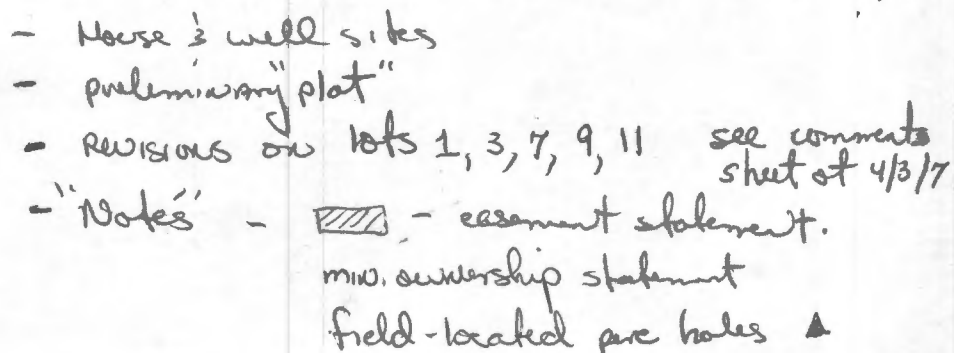 - House & well sites
- preliminary "plat"
- Revisions on lots 1, 3, 7, 9, 11 see comments
sheet of 4/3/7
- "Notes" - - easement statement.
min. ownership statement
field-located perc holes ▲